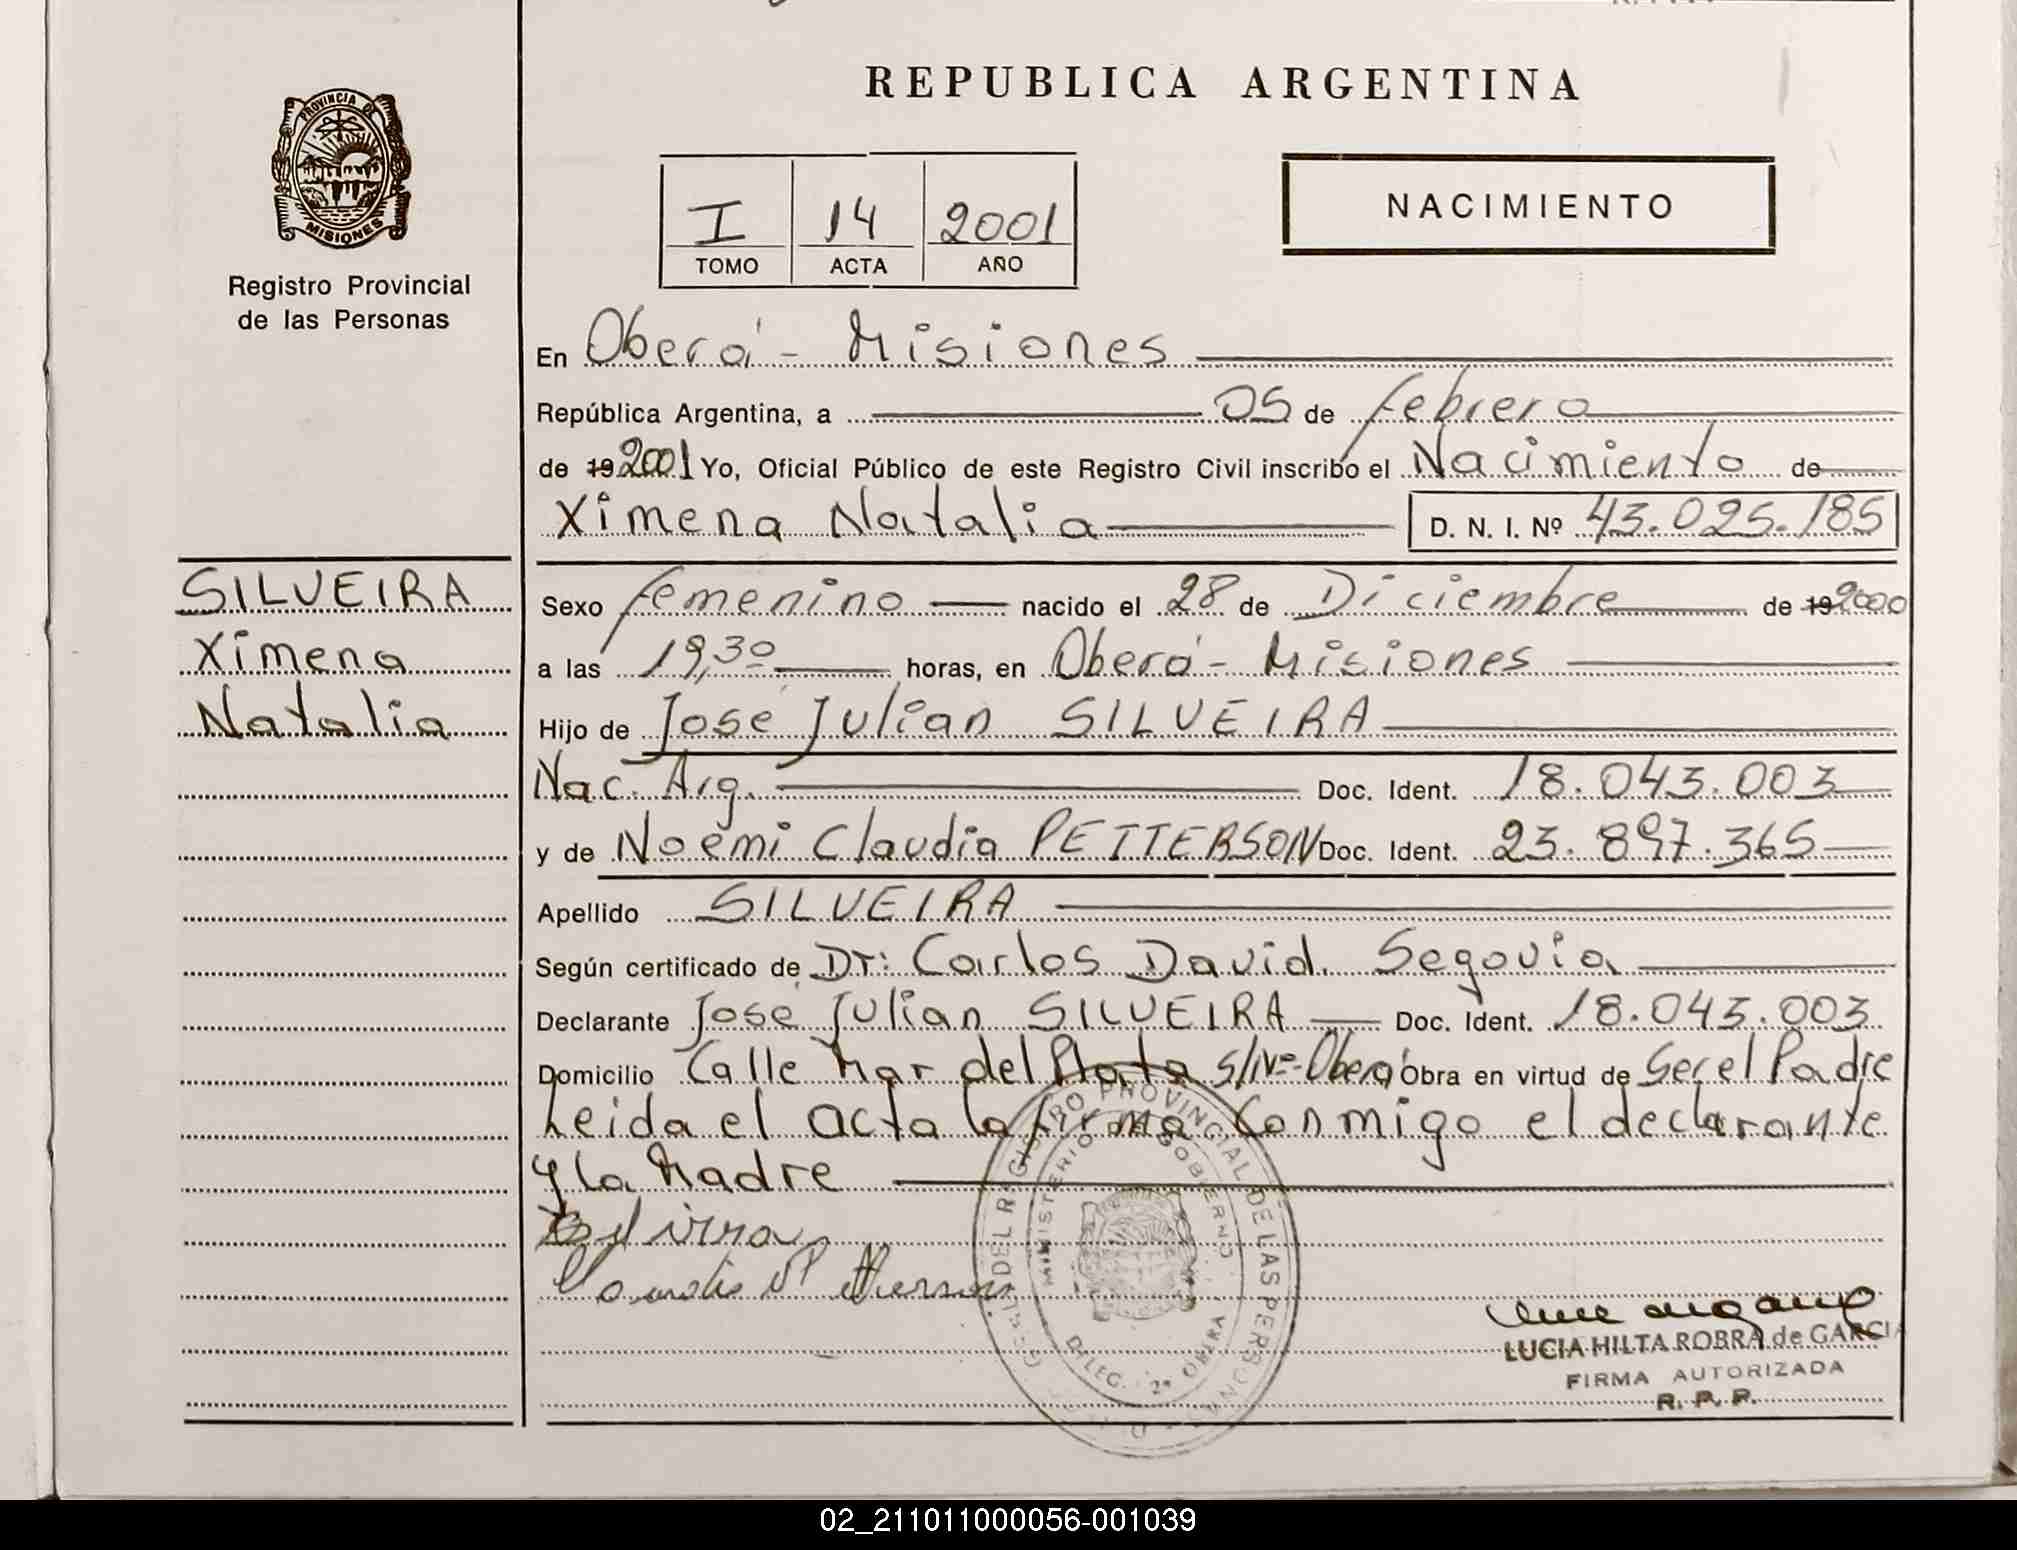 REPUBLICA ARGENTINA
PROVINCIA DE
MISIONES
Registro Provincial
de las Personas
I 14 2001
TOMO ACTA AÑO
NACIMIENTO
En Oberá - Misiones
República Argentina, a 05 de febrero
de 19 2001 Yo, Oficial Público de este Registro Civil inscribo el Nacimiento de
Ximena Natalia D. N. I. Nº 43.025.185
SILVEIRA
Ximena
Natalia
Sexo femenino nacido el 28 de Diciembre de 19 2000
a las 19,30 horas, en Oberá - Misiones
Hijo de José Julian SILVEIRA
Nac. Arg. Doc. Ident. 18.043.003
y de Noemi Claudia PETTERSON Doc. Ident. 23.897.365
Apellido SILVEIRA
Según certificado de Dr: Carlos David Segovia
Declarante José Julian SILVEIRA Doc. Ident. 18.043.003
Domicilio Calle Mar del Plata S/Nº - Oberá Obra en virtud de Ser el Padre
Leida el acta la firma conmigo el declarante
y la Madre
DEL REGISTRO PROVINCIAL DE LAS PERSONAS
MINISTERIO DE GOBIERNO
DELEG. 2ª OBERA
LUCIA HILTA ROBRA de GARCIA
FIRMA AUTORIZADA
R. P. P.
02_211011000056-001039